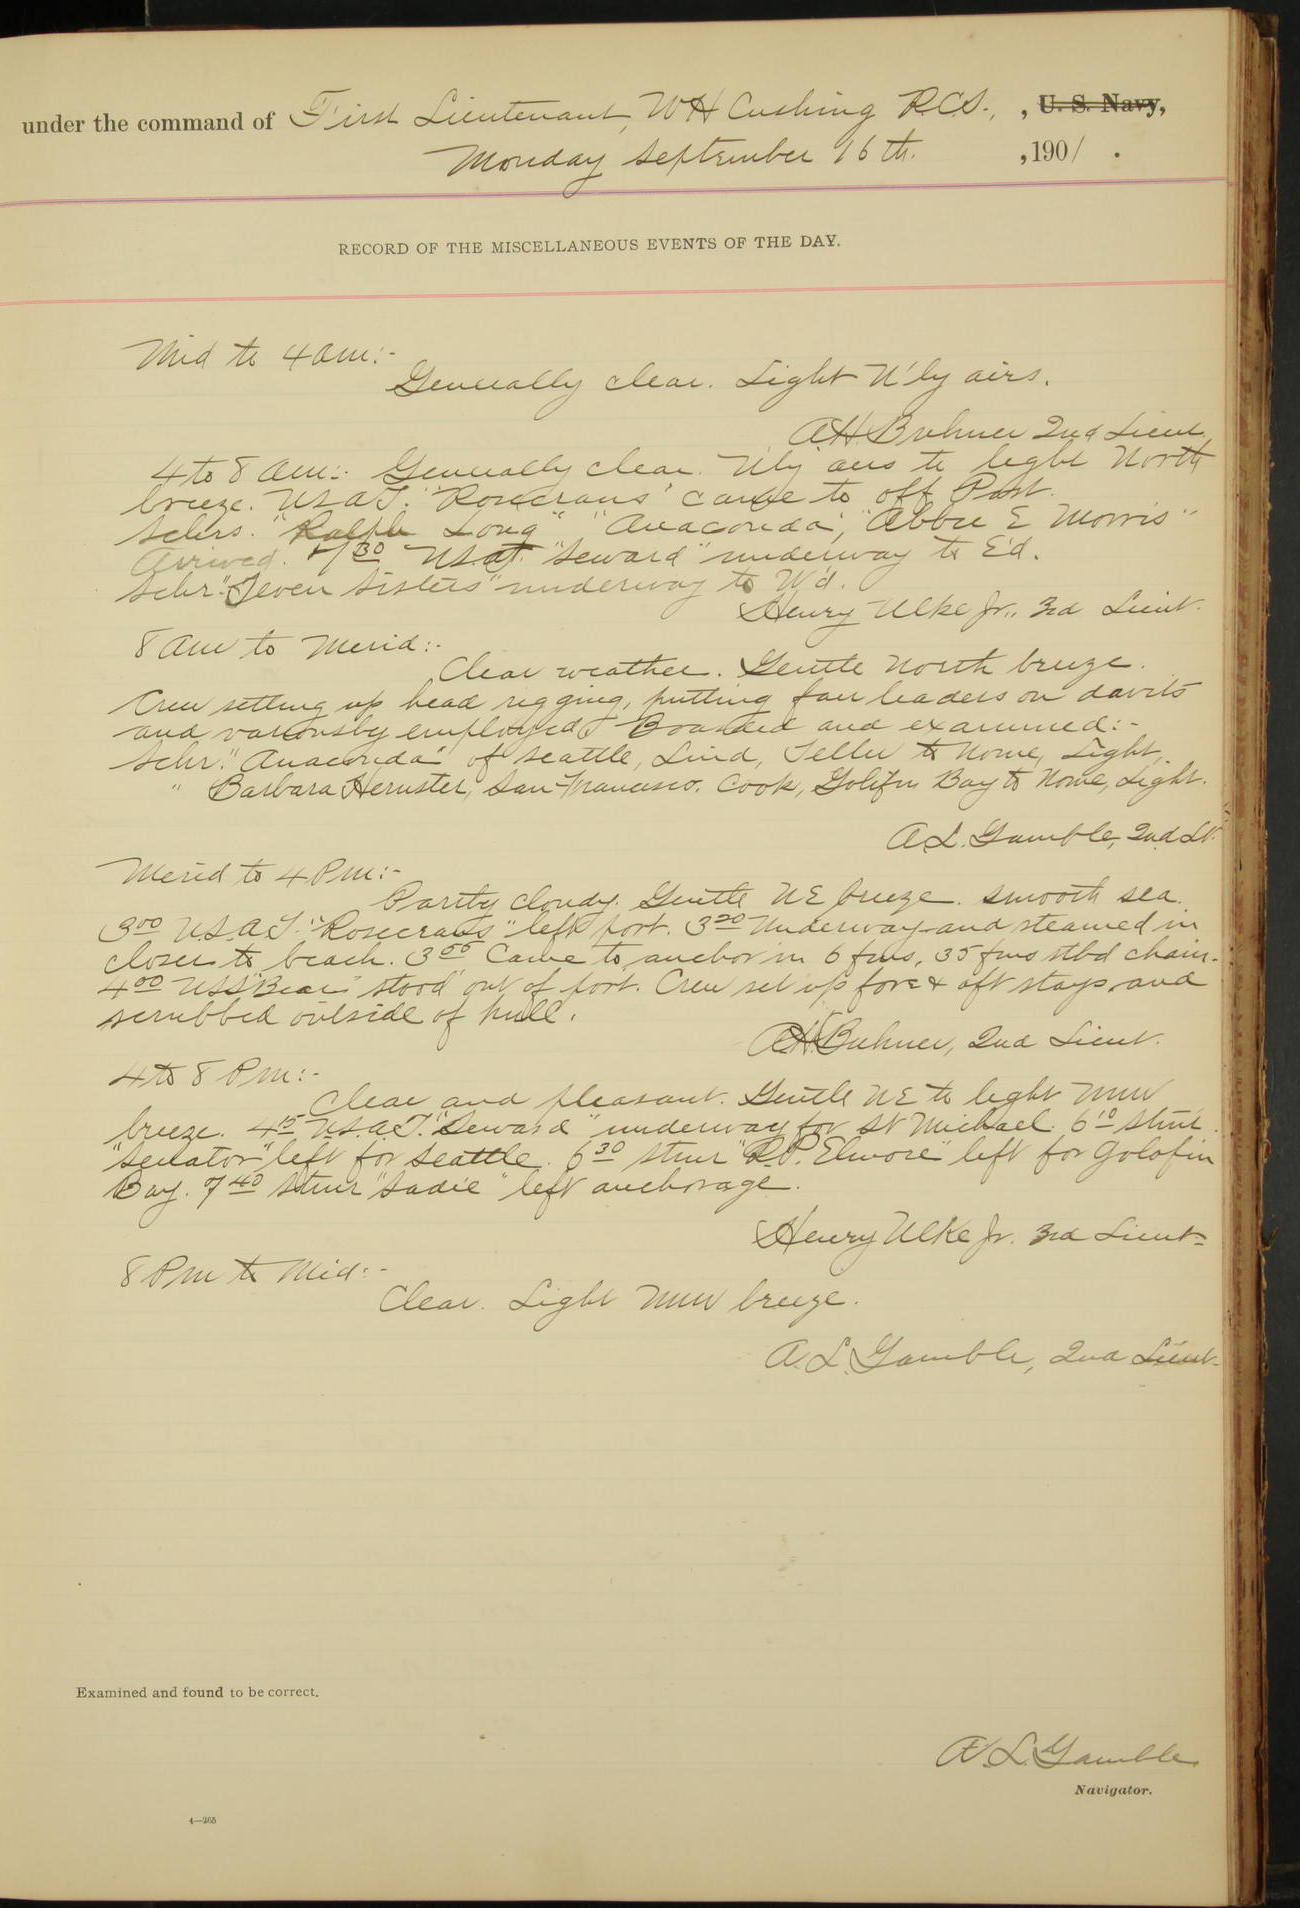 under the command of First Lieutenant, W H Cushing R.C.S., , U. S. Navy,
Monday September 16th. , 1901 .
RECORD OF THE MISCELLANEOUS EVENTS OF THE DAY.
Mid to 4 am:-
Generally clear. Light N'ly airs.
A H Buhner 2nd Lieut.
4 to 8 am:- Generally clear. N'ly airs to light North
breeze. U.S.A.T. "Rosecrans" came to off Post.
Schrs. "Ralph Long" "Anaconda", "Abbie E Morris"
Arrived. 7 30 U.S.A.T. "Seward" underway to E'd.
Schr. "Seven Sisters" underway to W'd.
Henry Ulke Jr., 3rd Lieut.
8 am to Merid:-
Clear weather. Gentle North breeze.
Crew setting up head rigging, putting fair leaders on davits
and variously employed. Boarded and examined:-
Schr. "Anaconda" of Seattle, Lind, Teller to Nome, Light.
" Barbara Hernster, San Francisco. Cook, Golifin Bay to Nome, Light.
A.L. Gamble, 2nd Lt.
Merid to 4 Pm:-
Partly cloudy. Gentle NE breeze. Smooth sea.
3 00 U.S.A.T. "Rosecrans" left port. 3 20 Underway and steamed in
closer to beach. 3 55 Came to anchor in 6 fms, 35 fms stbd chain.
4 00 USS "Bear" stood out of port. Crew set up fore & aft stays and
scrubbed outside of hull.
A H Buhner, 2nd Lieut.
4 to 8 Pm:-
Clear and pleasant. Gentle NE to light NNW
breeze. 4 15 U.S.A.T. "Seward" underway for St Michael. 6 10 Stmr.
"Senator" left for Seattle. 6 30 Stmr "R.P. Elmore" left for Golofin
Bay. 7 40 Stmr "Sadie" left anchorage.
Henry Ulke Jr. 3rd Lieut.
8 Pm to Mid:-
Clear. Light NNW breeze.
A. L. Gamble, 2nd Lieut.
Examined and found to be correct.
A. L. Gamble
Navigator.
4—265